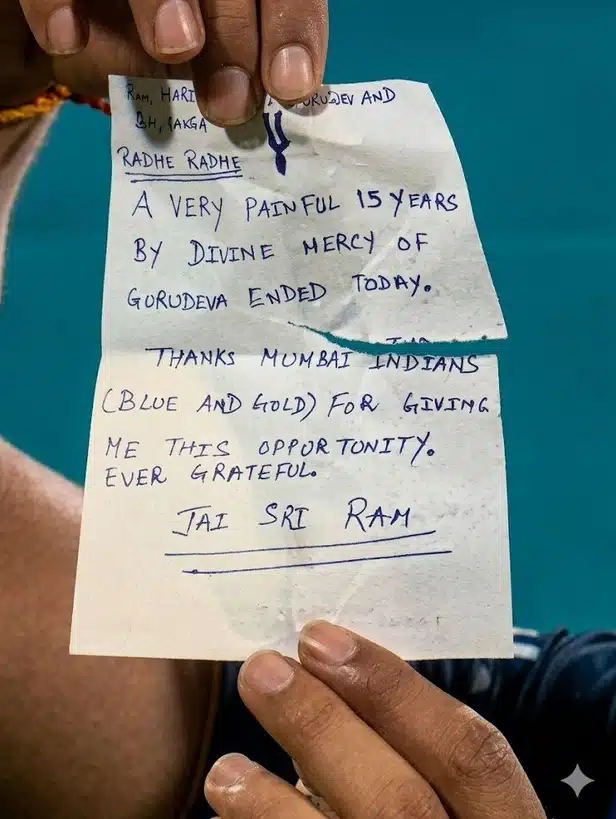 RAM, HARI GURUDEV AND
RADHE RADHE
A VERY PAINFUL 15 YEARS
BY DIVINE MERCY OF
GURUDEVA ENDED TODAY.
THANKS MUMBAI INDIANS
(BLUE AND GOLD) FOR GIVING
ME THIS OPPORTUNITY.
EVER GRATEFUL.
JAI SRI RAM